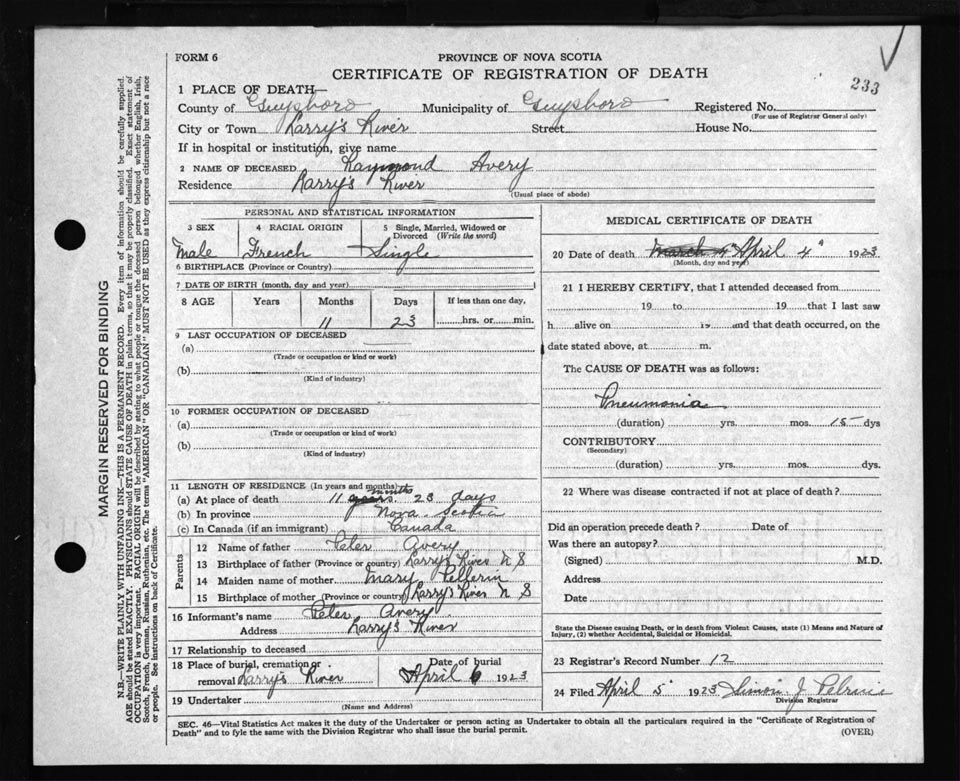 FORM 6
PROVINCE OF NOVA SCOTIA
CERTIFICATE OF REGISTRATION OF DEATH
233
1 PLACE OF DEATH—
County of Guysboro Municipality of Guysboro Registered No.
(For use of Registrar General only)
City or Town Larry's River Street House No.
If in hospital or institution, give name
2 NAME OF DECEASED Raymond Avery
Residence Larry's River
(Usual place of abode)
PERSONAL AND STATISTICAL INFORMATION
3 SEX 4 RACIAL ORIGIN 5 Single, Married, Widowed or Divorced (Write the word)
Male French Single
6 BIRTHPLACE (Province or Country)
7 DATE OF BIRTH (month, day and year)
8 AGE Years Months Days If less than one day,
11 23 hrs. or min.
9 LAST OCCUPATION OF DECEASED
(a)
(Trade or occupation or kind of work)
(b)
(Kind of industry)
10 FORMER OCCUPATION OF DECEASED
(a)
(Trade or occupation or kind of work)
(b)
(Kind of industry)
11 LENGTH OF RESIDENCE (In years and months)
(a) At place of death 11 years months 23 days
(b) In province Nova Scotia
(c) In Canada (if an immigrant) Canada
Parents
12 Name of father Peter Avery
13 Birthplace of father (Province or country) Larry's River N S
14 Maiden name of mother Mary Pellerin
15 Birthplace of mother (Province or country) Larry's River N S
16 Informant's name Peter Avery
Address Larry's River
17 Relationship to deceased
18 Place of burial, cremation or Date of burial
removal Larry's River April 6 1923
19 Undertaker
(Name and Address)
MEDICAL CERTIFICATE OF DEATH
20 Date of death March 4" April 4" 1923
(Month, day and year)
21 I HEREBY CERTIFY, that I attended deceased from
19 to 19 that I last saw
h alive on 19 and that death occurred, on the
date stated above, at m.
The CAUSE OF DEATH was as follows:
Pneumonia
(duration) yrs. mos. 15 dys
CONTRIBUTORY
(Secondary)
(duration) yrs. mos. dys.
22 Where was disease contracted if not at place of death?
Did an operation precede death? Date of
Was there an autopsy?
(Signed) M.D.
Address
Date
State the Disease causing Death, or in death from Violent Causes, state (1) Means and Nature of
Injury, (2) whether Accidental, Suicidal or Homicidal.
23 Registrar's Record Number 12
24 Filed April 5 1923 Simon J Pelrine
Division Registrar
SEC. 46—Vital Statistics Act makes it the duty of the Undertaker or person acting as Undertaker to obtain all the particulars required in the "Certificate of Registration of
Death" and to fyle the same with the Division Registrar who shall issue the burial permit.
(OVER)
MARGIN RESERVED FOR BINDING
N.B.—WRITE PLAINLY WITH UNFADING INK—THIS IS A PERMANENT RECORD. Every item of information should be carefully supplied.
AGE should be stated EXACTLY. PHYSICIANS should STATE CAUSE OF DEATH in plain terms, so that it may be properly classified. Exact statement of
OCCUPATION is very important. RACIAL ORIGIN will be described by stating to what people or tongue the deceased person belonged whether English, Irish,
Scotch, French, German, Russian, Ruthenian, etc. The terms "AMERICAN" OR "CANADIAN" MUST NOT BE USED as they express citizenship but not a race
or people. See instructions on back of Certificate.